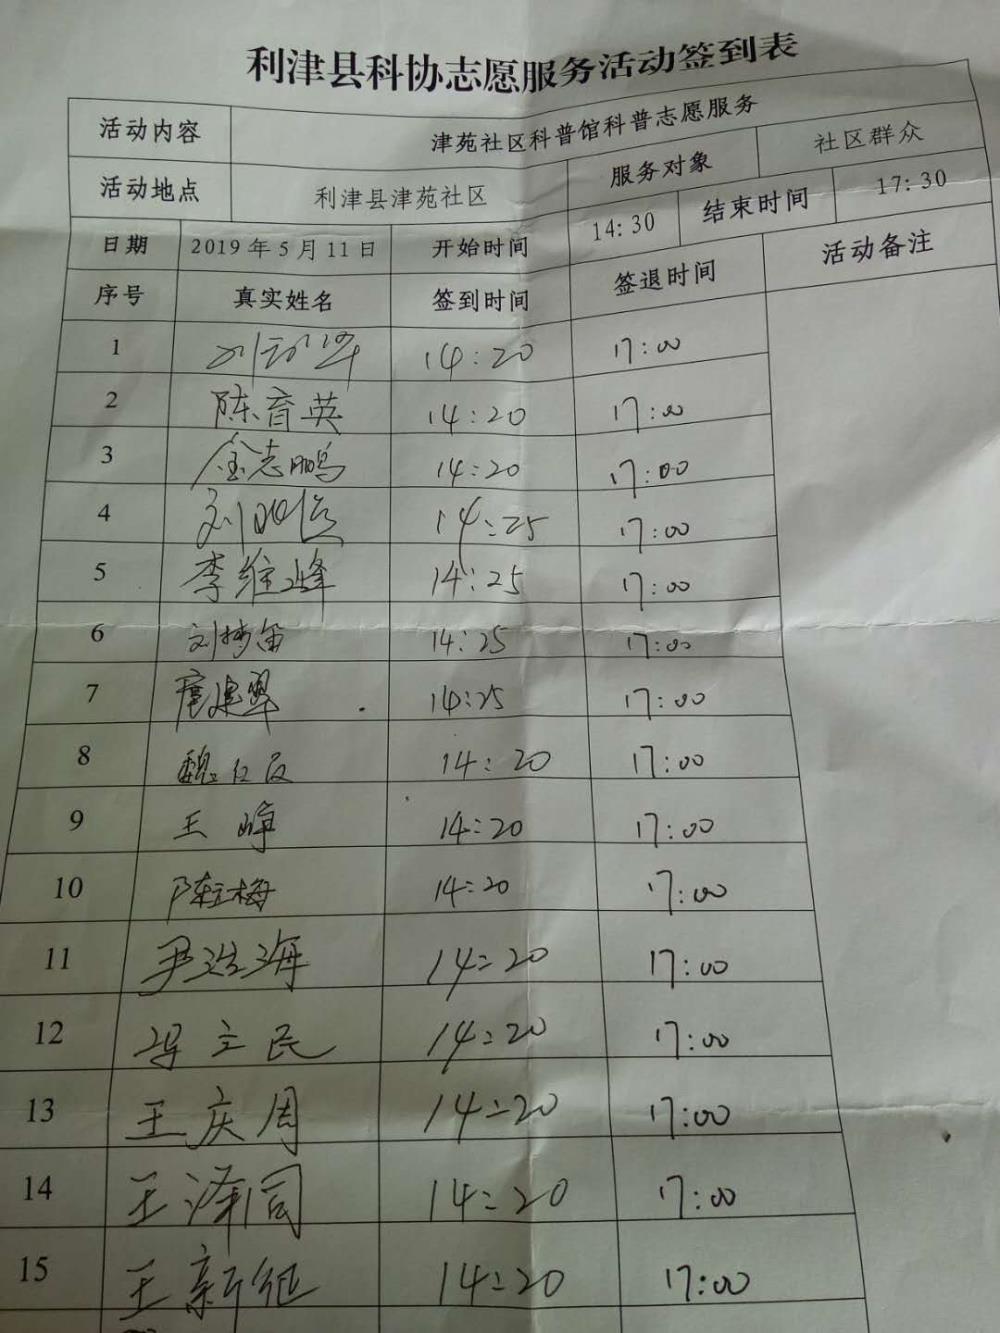 利津县科协志愿服务活动签到表
活动内容 津苑社区科普馆科普志愿服务
活动地点 利津县津苑社区 服务对象 社区群众
日期 2019年5月11日 开始时间 14:30 结束时间 17:30
序号 真实姓名 签到时间 签退时间 活动备注
1 14:20 17:00
2 陈育英 14:20 17:00
3 金志鹏 14:20 17:00
4 14:25 17:00
5 李维峰 14:25 17:00
6 刘梦笛 14:25 17:00
7 14:25 17:00
8 魏红民 14:20 17:00
9 王峥 14:20 17:00
10 陈立梅 14:20 17:00
11 尹浩海 14:20 17:00
12 冯立民 14:20 17:00
13 王庆周 14:20 17:00
14 王泽同 14:20 17:00
15 王新征 14:20 17:00